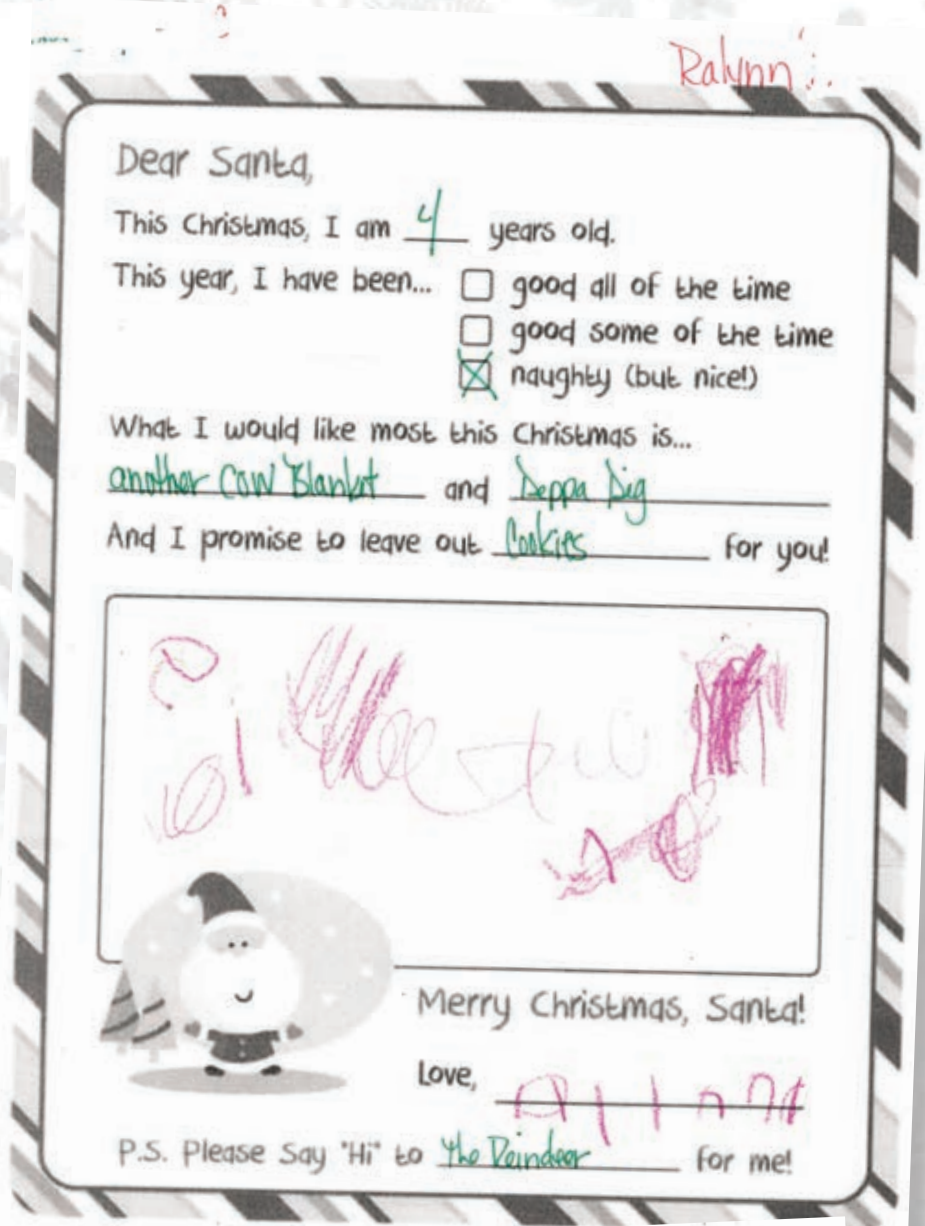 Ralynn
Dear Santa,
This Christmas, I am 4 years old.
This year, I have been... good all of the time
good some of the time
naughty (but nice!)
What I would like most this Christmas is...
another Cow Blanket and Peppa Pig
And I promise to leave out Cookies for you!
Merry Christmas, Santa!
Love,
P.S. Please Say "Hi" to the Reindeer for me!